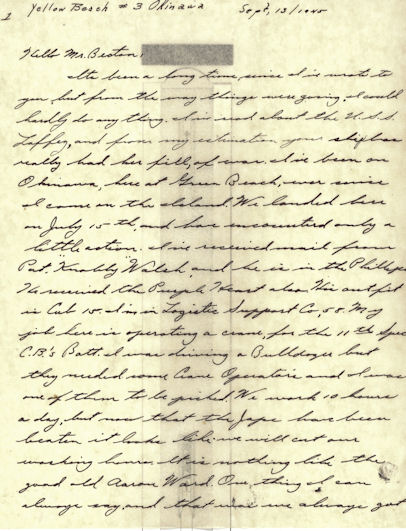 1 Yellow Beach #3 Okinawa Sept, 13/1945
Hello Mr. Beaton,
Its been a long time, since I've wrote to
you, but from the way things were going, I could
hardly do any thing. I've read about the U.S.S.
Laffey, and from my estimation your ship has
really had her fill, of war. I've been on
Okinawa, here at Green Beach, ever since
I came on the island. We landed here
on July 15th, and have encountered only a
little action. I've received mail from
Pat. "Knobby" Walsh and he is in the Phillipe
He received the Purple Heart also. His outfit
is Cub 15. I'm in Logistic Support Co, 58. My
job here is operating a crane, for the 11th Spec
C.B.'s Batt. I was driving a Bulldozer but
they needed some Crane Operators and I was
one of them to be picked. We work 10 hours
a day, but now that the Japs have been
beaten it looks like we will cut our
working hours. It is nothing like the
good old Aaron Ward. One, thing I can
always say, and that was we always got